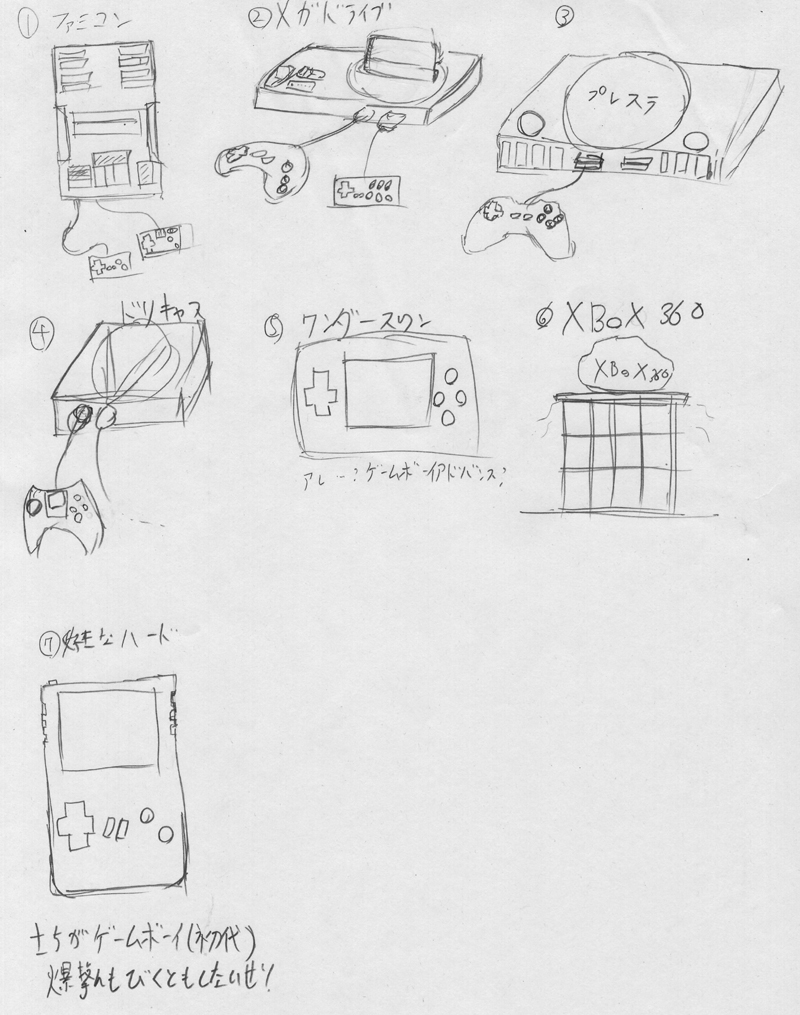 ① ファミコン
② メガドライブ
③
プレステ
④ ドリキャス
⑤ ワンダースワン
アレ…?ゲームボーイアドバンス?
⑥ XBOX 360
XBOX360
⑦ 好きなハード
ゲームボーイ(初代)
びくともしないぜ!